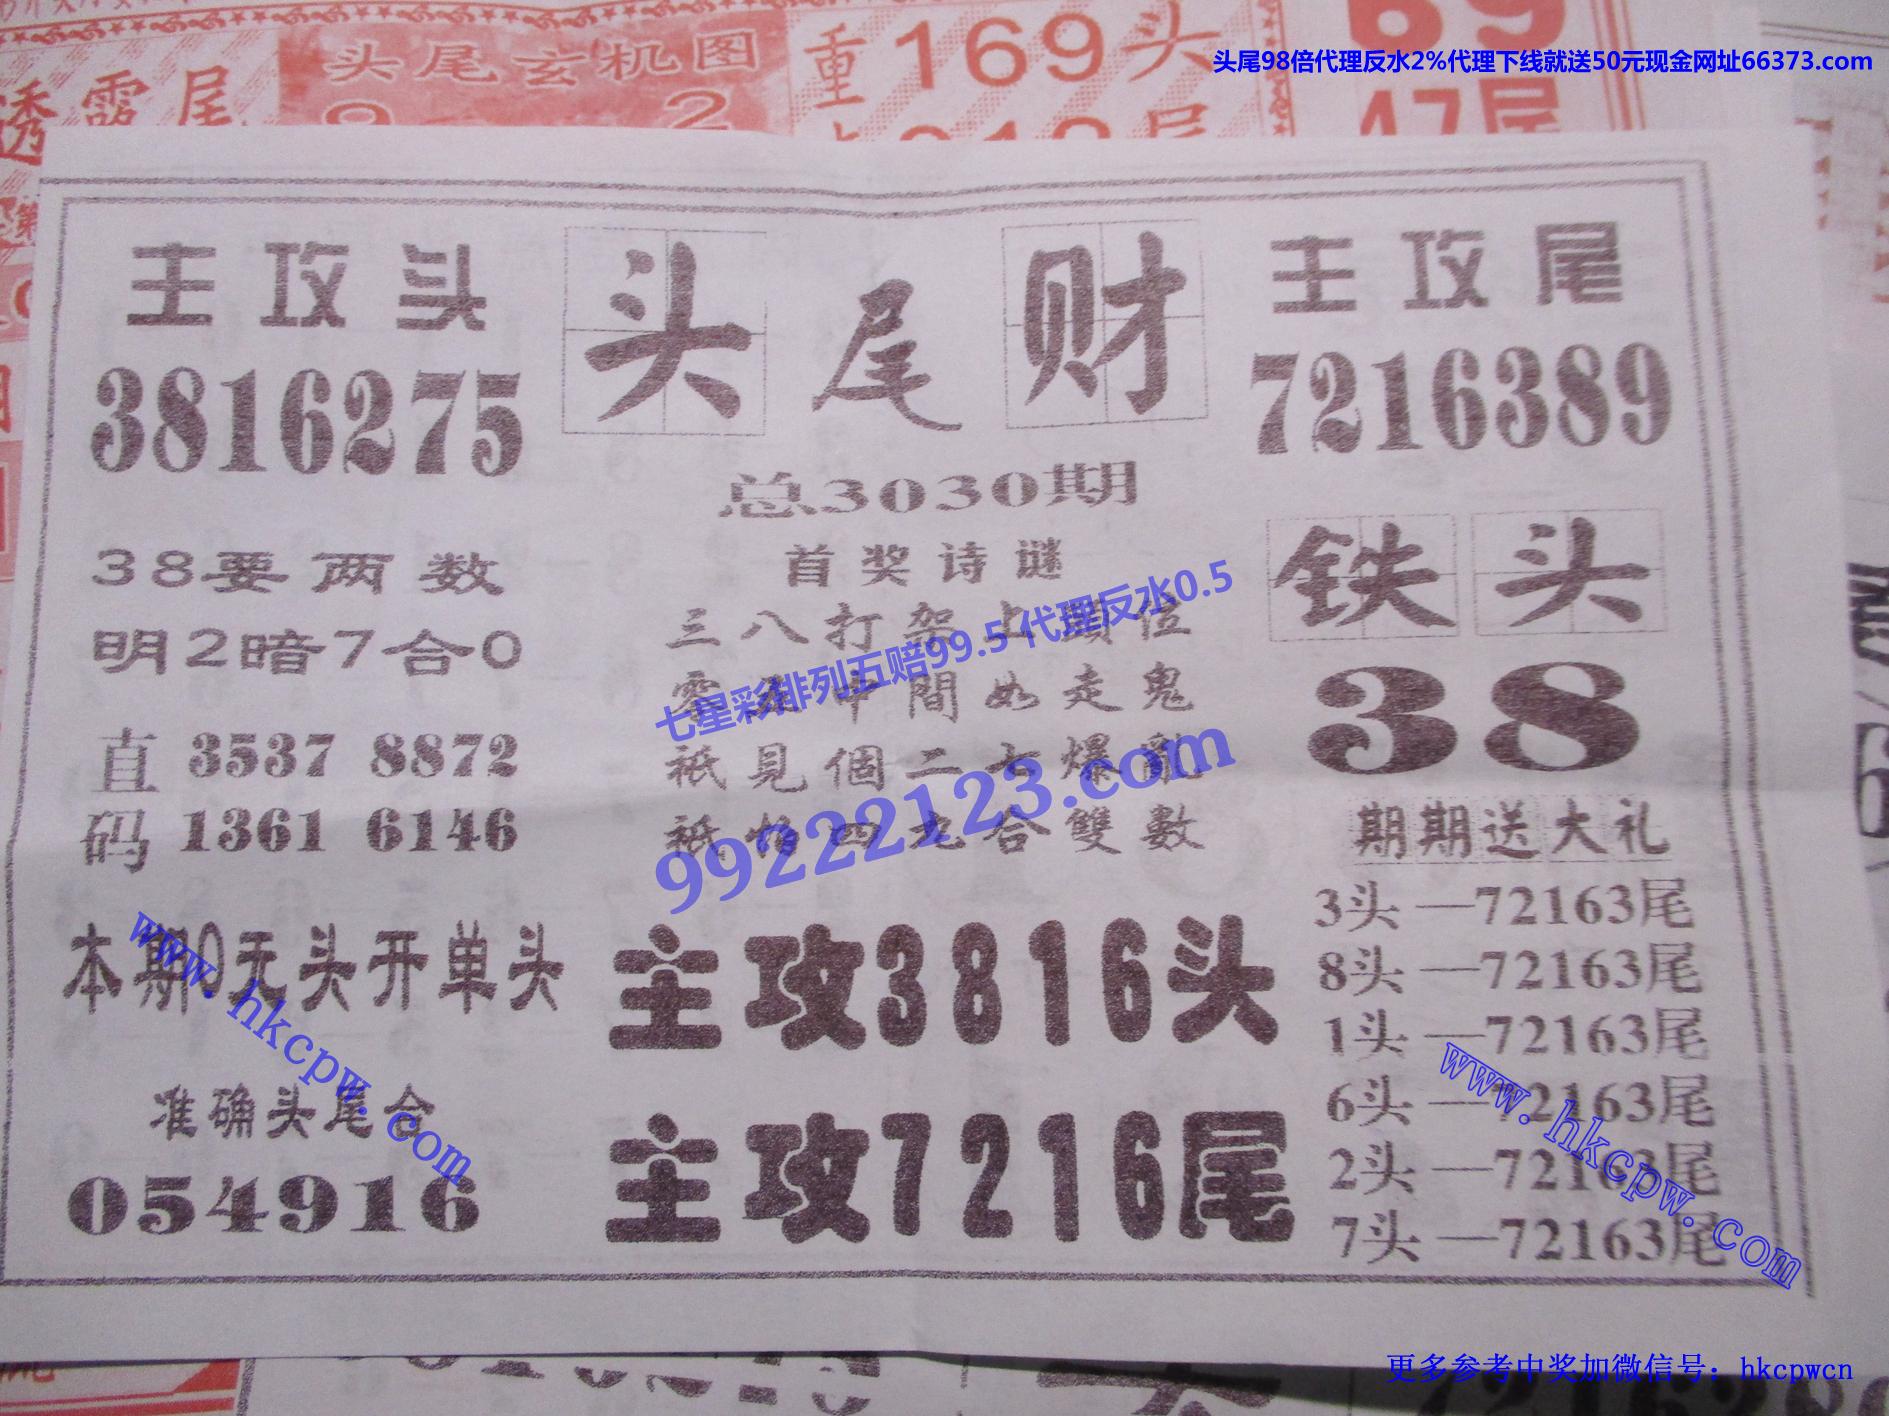 透露尾
头尾玄机图
9 2
重169头
69
47尾
头尾98倍代理反水2%代理下线就送50元现金网址66373.com
主攻头
3816275
头尾财
主攻尾
7216389
总3030期
首奖诗谜
三八打架上頭位
中間如走鬼
祇見個二七爆亂
祇怕四九合雙數
七星彩排列五赔99.5 代理反水0.5
99222123.com
38要两数
明2暗7合0
直 3537 8872
码 1361 6146
铁头
38
期期送大礼
3头—72163尾
8头—72163尾
1头—72163尾
6头—72163尾
2头—72163尾
7头—72163尾
本期0无头开单头
准确头尾合
054916
主攻3816头
主攻7216尾
www.hkcpw.com
www.hkcpw.com
更多参考中奖加微信号：hkcpwcn